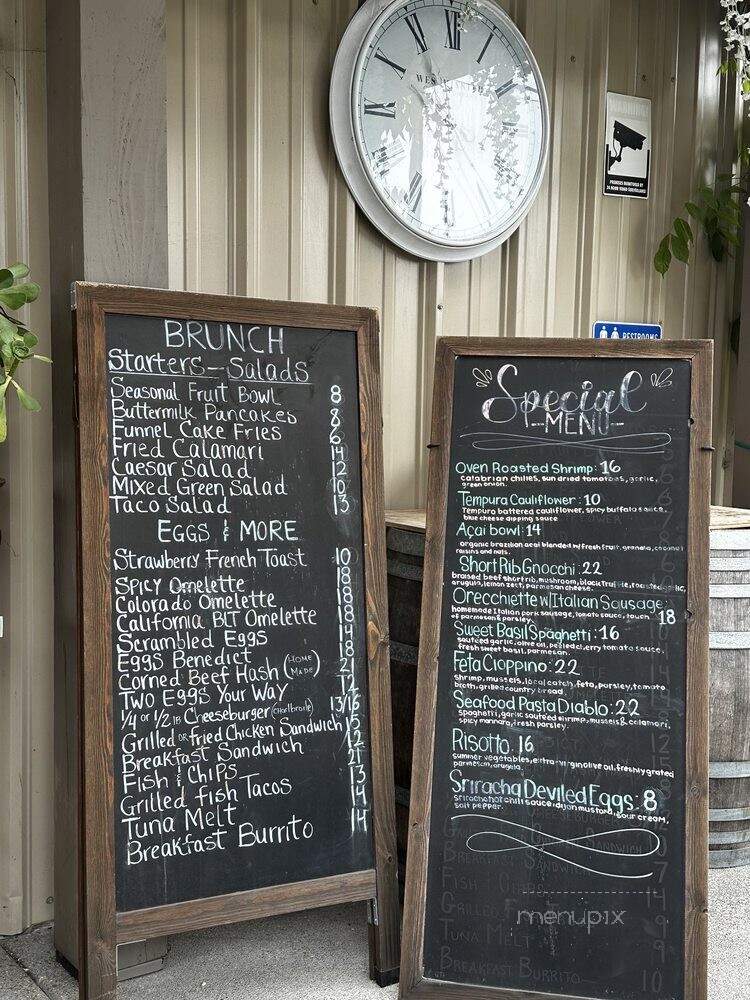 XII
WES
PREMISES PROTECTED BY
24 HOUR VIDEO SURVEILLANCE
RESTROOM
BRUNCH
Starters - Salads
Seasonal Fruit Bowl 8
Buttermilk Pancakes 8
Funnel Cake Fries 6
Fried Calamari 14
Caesar Salad 12
Mixed Green Salad 10
Taco Salad 13
EGGS & MORE
Strawberry French Toast 10
Spicy Omelette 18
Colorado Omelette 18
California BLT Omelette 18
Scrambled Eggs 14
Eggs Benedict 18
Corned Beef Hash (HOME MADE) 21
Two Eggs Your Way
1/4 or 1/2 lb Cheeseburger (Charbroile) 13/16
Grilled or Fried Chicken Sandwich 15
Breakfast Sandwich 12
Fish & Chips 21
Grilled fish Tacos 13
Tuna Melt 14
Breakfast Burrito 14
Special
MENU
Oven Roasted Shrimp: 16
Calabrian chilies, sun dried tomatoes, garlic,
green onion.
Tempura Cauliflower: 10
Tempura battered cauliflower, spicy buffalo sauce,
blue cheese dipping sauce
Açaí bowl: 14
organic brazilian acai blended w/ fresh fruit, granola, coconut
raisins and nuts.
Short Rib Gnocchi: 22
braised beef short rib, mushroom, black truffle, roasted garlic,
arugula, lemon zest, parmesan cheese.
Orecchiette w/ Italian Sausage: 18
homemade Italian pork sausage, tomato sauce, touch
of parmesan & parsley.
Sweet Basil Spaghetti: 16
sauteed garlic, olive oil, peeled cherry tomato sauce,
fresh sweet basil, parmesan.
Feta Cioppino: 22
shrimp, mussels, local catch, feta, parsley, tomato
broth, grilled country bread
Seafood Pasta Diablo: 22
spaghetti, garlic sautéed shrimp, mussels & calamari,
spicy marinara, fresh parsley.
Risotto: 16
summer vegetables, extra-virgin olive oil, freshly grated
parmesan, arugula.
Sriracha Devilled Eggs: 8
sriracha hot chili sauce, dijon mustard, sour cream,
salt pepper.
Breakfast Sandwich
Fish & Chips
Tuna Melt
Breakfast Burrito 10
menupix